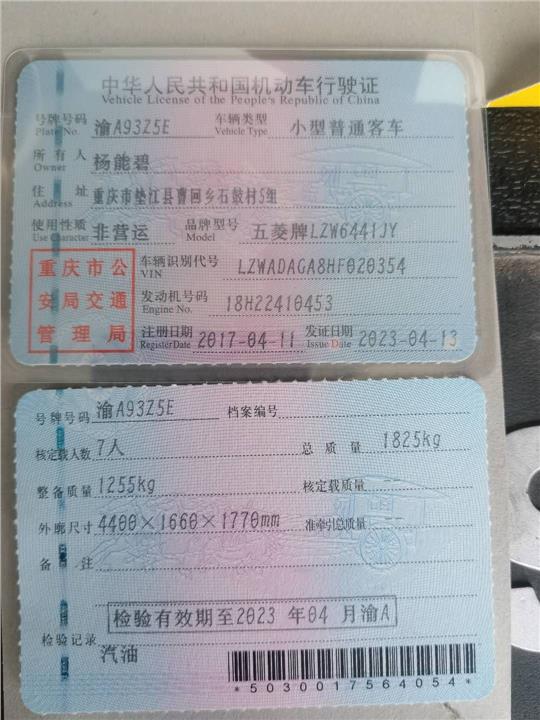 中华人民共和国机动车行驶证
Vehicle License of the People's Republic of China
号牌号码 渝A93Z5E 车辆类型 小型普通客车
Plate No. Vehicle Type
所有人 杨能碧
Owner
住址 重庆市垫江县曹回乡石鼓村5组
Address
使用性质 非营运 品牌型号 五菱牌LZW6441JY
Use Character Model
重庆市公安局交通管理局
车辆识别代号 LZWADAGA8HF020354
VIN
发动机号码 18H22410453
Engine No.
注册日期 2017-04-11 发证日期 2023-04-13
Register Date Issue Date
号牌号码 渝A93Z5E 档案编号
核定载人数 7人 总质量 1825kg
整备质量 1255kg 核定载质量 --
外廓尺寸 4400×1660×1770mm 准牵引总质量 --
备注
检验有效期至2023 年04 月渝A
检验记录
汽油
*5030017564054*